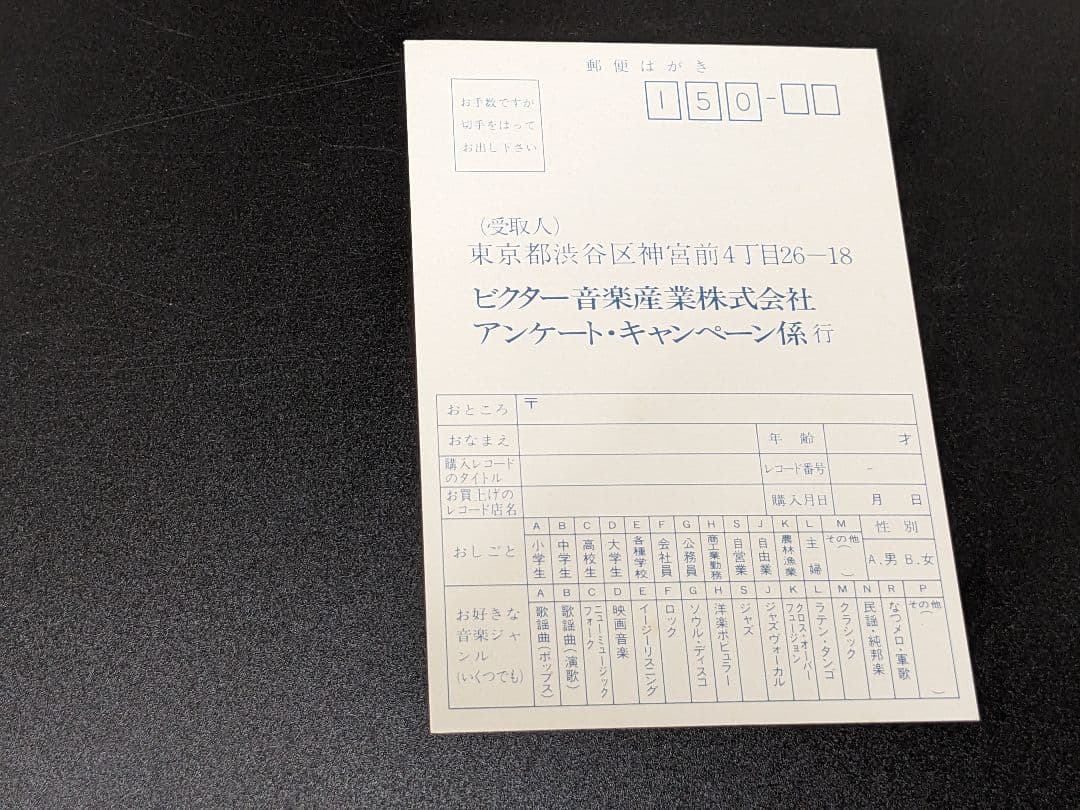 郵便はがき
お手数ですが
切手をはって
お出し下さい
150-
(受取人)
東京都渋谷区神宮前4丁目26-18
ビクター音楽産業株式会社
アンケート・キャンペーン係 行
おところ 〒
おなまえ 年齢 才
購入レコードのタイトル レコード番号 -
お買上げのレコード店名 購入月日 月 日
おしごと
A 小学生
B 中学生
C 高校生
D 大学生
E 各種学校
F 会社員
G 公務員
H 商工業勤務
S 自営業
J 自由業
K 農林漁業
L 主婦
M その他( )
性別
A.男 B.女
お好きな音楽ジャンル(いくつでも)
A 歌謡曲(ポップス)
B 歌謡曲(演歌)
C ニューミュージック フォーク
D 映画音楽
E イージーリスニング
F ロック
G ソウル・ディスコ
H 洋楽ポピュラー
S ジャズ
J ジャズヴォーカル
K クロス・オーバー フュージョン
L ラテン・タンゴ
M クラシック
N 民謡・純邦楽
R なつメロ・軍歌
P その他( )